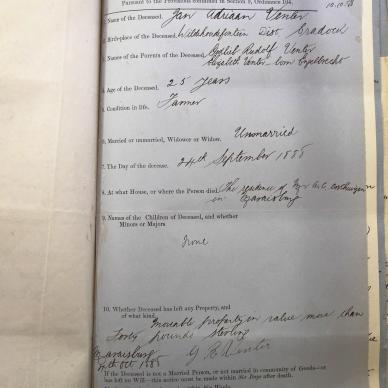 Pursuant to the Provisions contained in Section 9, Ordinance 104.
1. Name of the Deceased. Jan Adriaan Venter
2. Birth-place of the Deceased. Dist. Cradock
3. Names of the Parents of the Deceased. Rudolf Venter
Elizabeth Venter born Engelbrecht
4. Age of the Deceased. 25 years
5. Condition in life. Farmer
6. Married or unmarried, Widower or Widow. Unmarried
7. The Day of the decease. 24th September 1888
8. At what House, or where the Person died. The residence of Mr
in Maraisburg
9. Names of the Children of Deceased, and whether
Minors or Majors
None
10. Whether Deceased has left any Property, and
of what kind.
Moveable property in value more than
forty pounds sterling
Maraisburg
Oct 1888
Venter
If the Deceased is not a Married Person, or not married in community of Goods—or
has left no Will— this notice must be made within Six Days after death.